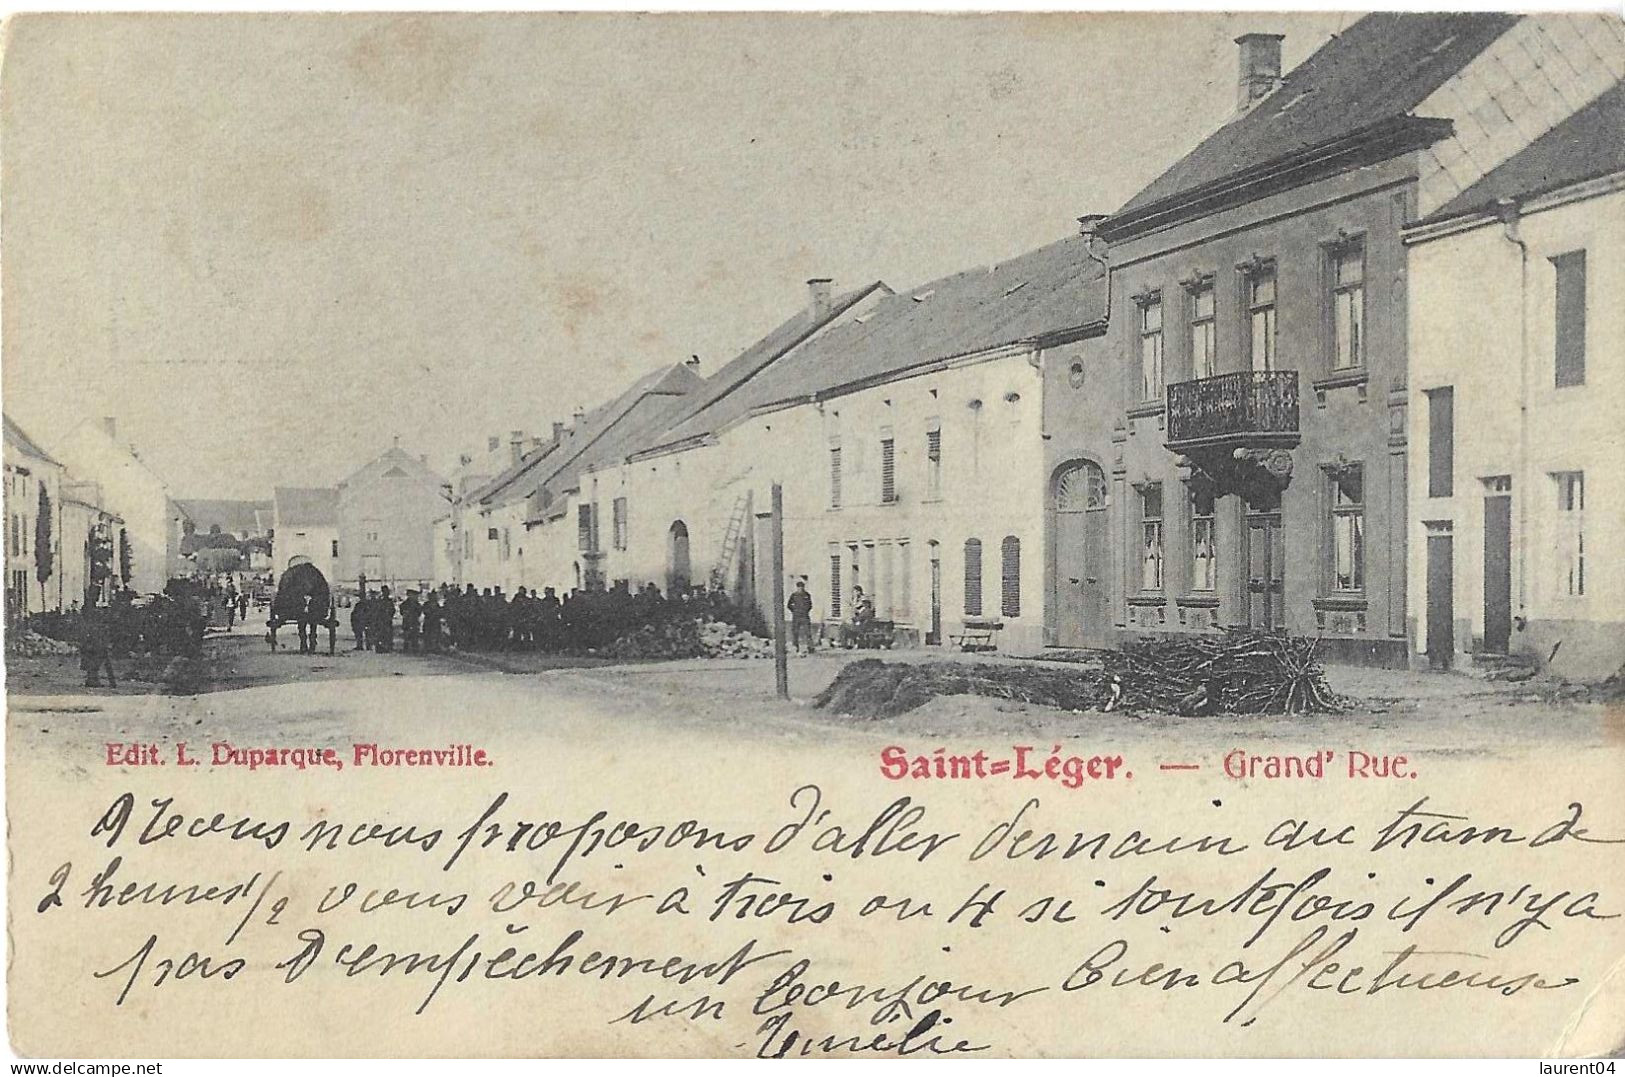 Edit. L. Duparque, Florenville.
Saint=Léger. — Grand' Rue.
Nous nous proposons d'aller demain au tram de
2 heures 1/2 vous voir à trois ou 4 si toutefois il n'y a
pas d'empêchement
un bonjour bien affectueuse
Amélie
delcampe.net
laurent04